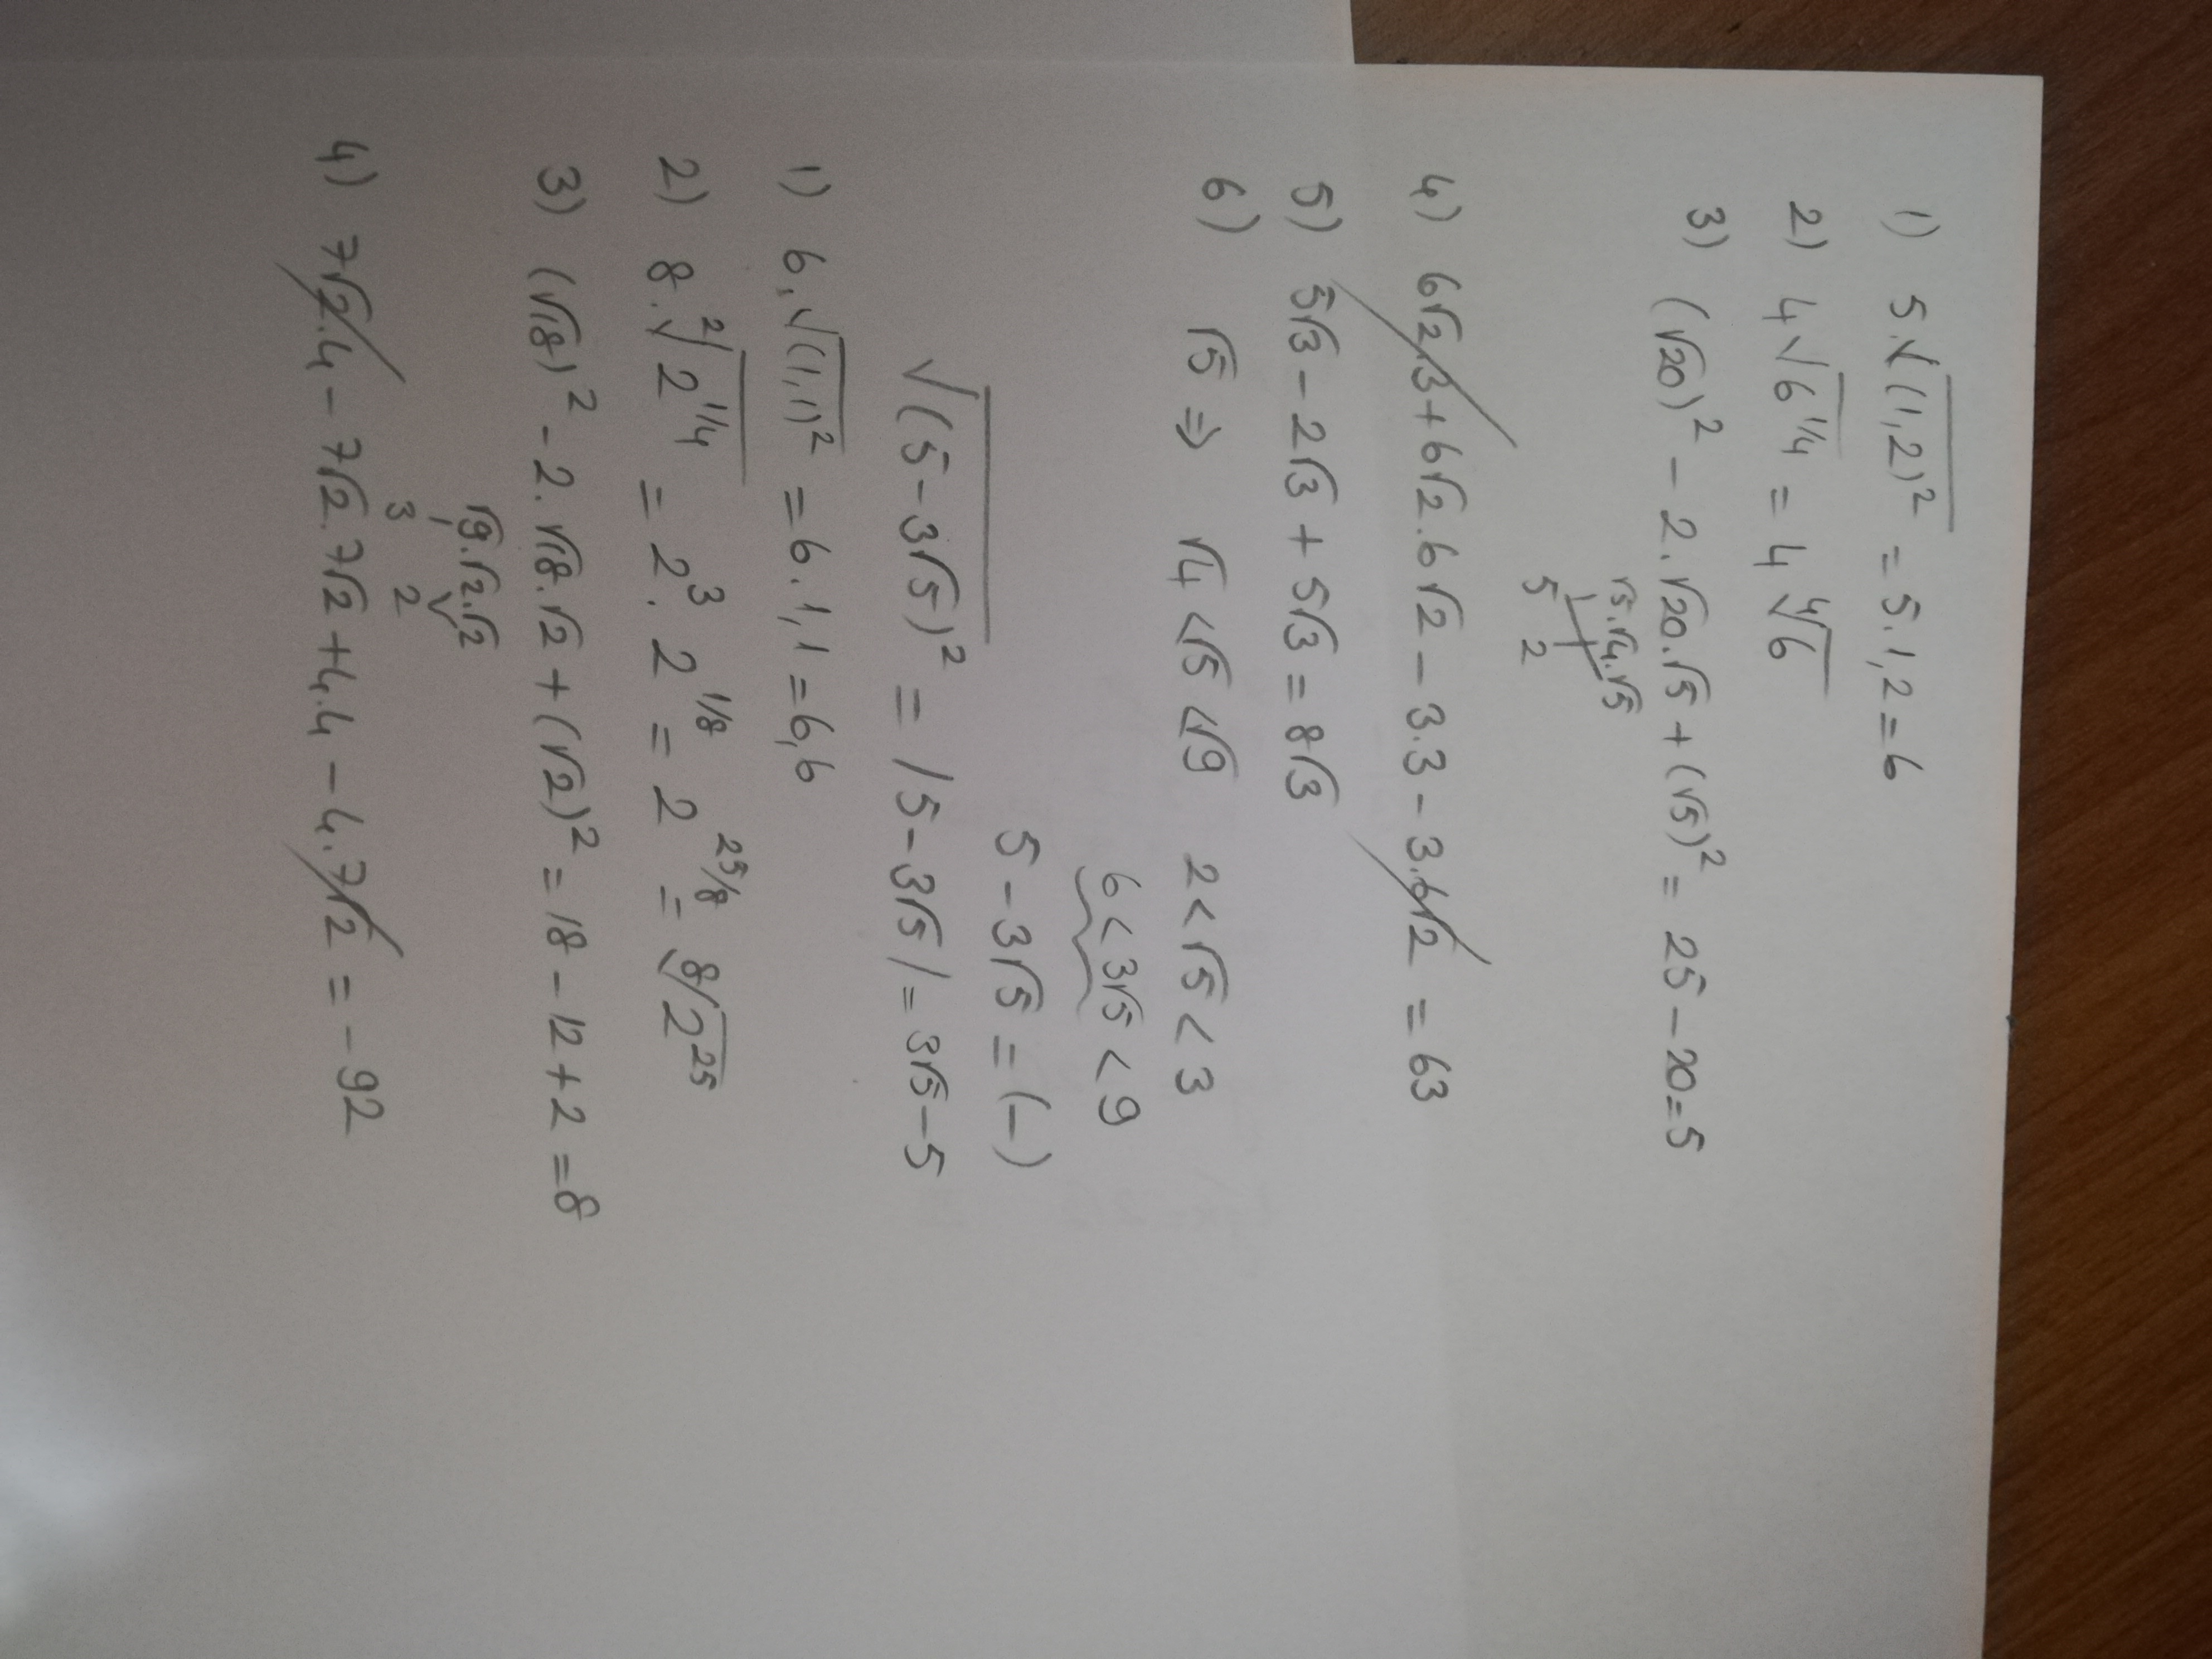 1) 5.√(1,2)² = 5.1,2 = 6
2) 4√6^1/4 = 4 ⁴√6
3) (√20)² - 2.√20.√5 + (√5)² = 25 - 20 = 5
√5.√4.√5
5 2
4) 6√2.3 + 6√2.6√2 - 3.3 - 3.6√2 = 63
5) 5√3 - 2√3 + 5√3 = 8√3
6) √5 ⇒ √4 < √5 < √9 2 < √5 < 3
6 < 3√5 < 9
5 - 3√5 = (-)
√(5-3√5)² = |5-3√5| = 3√5-5
1) 6.√(1,1)² = 6.1,1 = 6,6
2) 8.²√2^1/4 = 2³.2^1/8 = 2^25/8 = ⁸√2^25
3) (√18)² - 2.√18.√2 + (√2)² = 18 - 12 + 2 = 8
√9.√2.√2
3 2
4) 7√2.4 - 7√2.7√2 + 4.4 - 4.7√2 = -92